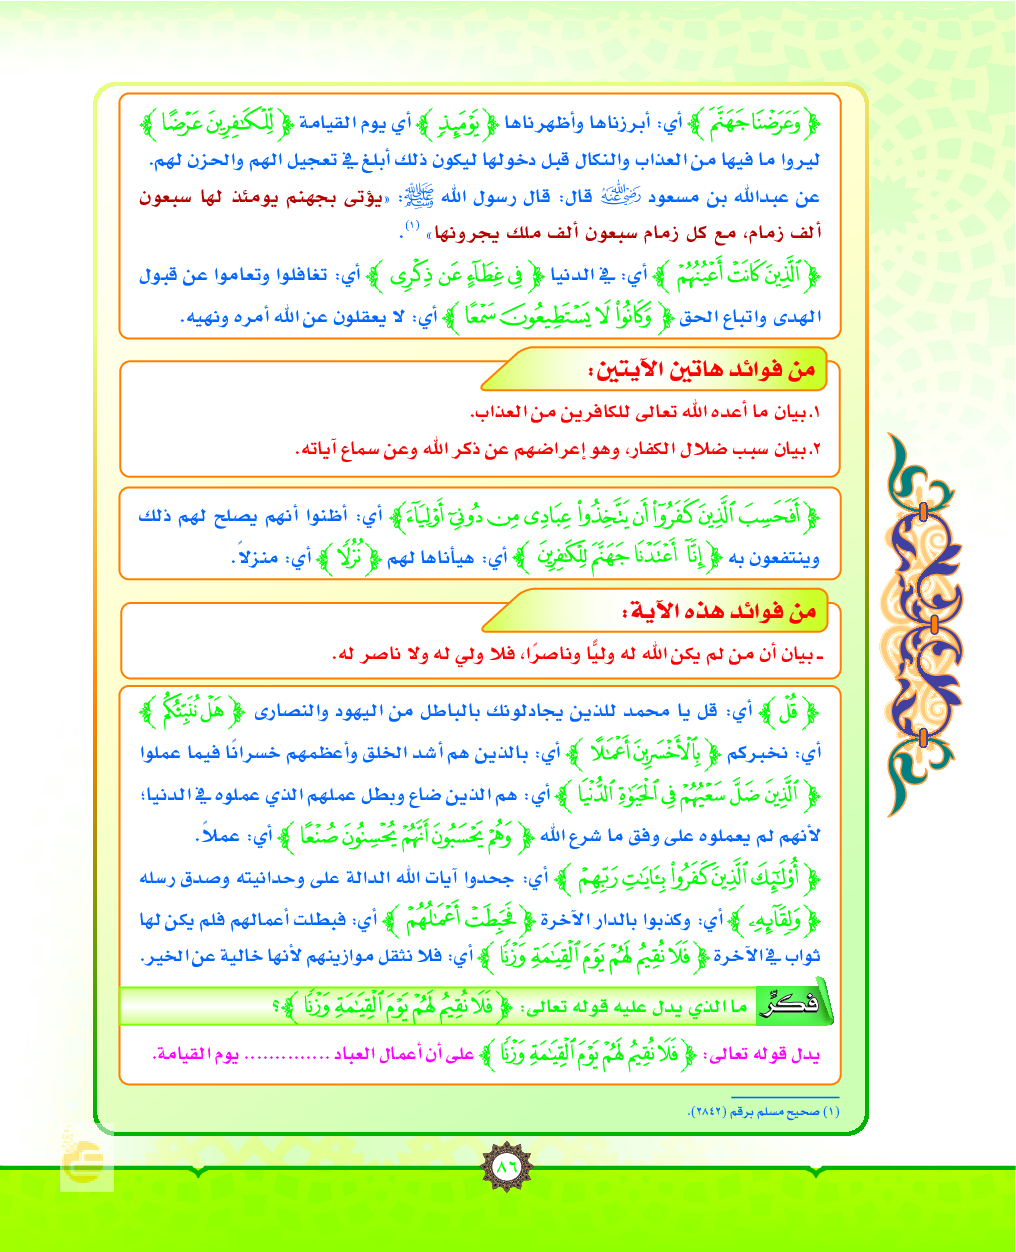 ﴿ وَعَرَضْنَا جَهَنَّمَ ﴾ أي: أبرزناها وأظهرناها ﴿ يَوْمَئِذٍ ﴾ أي يوم القيامة ﴿ لِّلْكَٰفِرِينَ عَرْضًا ﴾
ليروا ما فيها من العذاب والنكال قبل دخولها ليكون ذلك أبلغ في تعجيل الهم والحزن لهم.
عن عبدالله بن مسعود رضي الله عنه قال: قال رسول الله ﷺ: «يؤتى بجهنم يومئذ لها سبعون
ألف زمام، مع كل زمام سبعون ألف ملك يجرونها» (١).
﴿ ٱلَّذِينَ كَانَتْ أَعْيُنُهُمْ ﴾ أي: في الدنيا ﴿ فِى غِطَآءٍ عَن ذِكْرِى ﴾ أي: تغافلوا وتعاموا عن قبول
الهدى واتباع الحق ﴿ وَكَانُوا۟ لَا يَسْتَطِيعُونَ سَمْعًا ﴾ أي: لا يعقلون عن الله أمره ونهيه.
من فوائد هاتين الآيتين:
١.بيان ما أعده الله تعالى للكافرين من العذاب.
٢.بيان سبب ضلال الكفار، وهو إعراضهم عن ذكر الله وعن سماع آياته.
﴿ أَفَحَسِبَ ٱلَّذِينَ كَفَرُوٓا۟ أَن يَتَّخِذُوا۟ عِبَادِى مِن دُونِىٓ أَوْلِيَآءَ ﴾ أي: أظنوا أنهم يصلح لهم ذلك
وينتفعون به ﴿ إِنَّآ أَعْتَدْنَا جَهَنَّمَ لِلْكَٰفِرِينَ ﴾ أي: هيأناها لهم ﴿ نُزُلًا ﴾ أي: منزلاً.
من فوائد هذه الآية:
ـ بيان أن من لم يكن الله له وليًّا وناصرًا، فلا ولي له ولا ناصر له.
﴿ قُلْ ﴾ أي: قل يا محمد للذين يجادلونك بالباطل من اليهود والنصارى ﴿ هَلْ نُنَبِّئُكُم ﴾
أي: نخبركم ﴿ بِٱلْأَخْسَرِينَ أَعْمَٰلًا ﴾ أي: بالذين هم أشد الخلق وأعظمهم خسرانًا فيما عملوا
﴿ ٱلَّذِينَ ضَلَّ سَعْيُهُمْ فِى ٱلْحَيَوٰةِ ٱلدُّنْيَا ﴾ أي: هم الذين ضاع وبطل عملهم الذي عملوه في الدنيا؛
لأنهم لم يعملوه على وفق ما شرع الله ﴿ وَهُمْ يَحْسَبُونَ أَنَّهُمْ يُحْسِنُونَ صُنْعًا ﴾ أي: عملاً.
﴿ أُو۟لَٰٓئِكَ ٱلَّذِينَ كَفَرُوا۟ بِـَٔايَٰتِ رَبِّهِمْ ﴾ أي: جحدوا آيات الله الدالة على وحدانيته وصدق رسله
﴿ وَلِقَآئِهِۦ ﴾ أي: وكذبوا بالدار الآخرة ﴿ فَحَبِطَتْ أَعْمَٰلُهُمْ ﴾ أي: فبطلت أعمالهم فلم يكن لها
ثواب في الآخرة ﴿ فَلَا نُقِيمُ لَهُمْ يَوْمَ ٱلْقِيَٰمَةِ وَزْنًا ﴾ أي: فلا نثقل موازينهم لأنها خالية عن الخير.
فكّر ما الذي يدل عليه قوله تعالى: ﴿ فَلَا نُقِيمُ لَهُمْ يَوْمَ ٱلْقِيَٰمَةِ وَزْنًا ﴾؟
يدل قوله تعالى: ﴿ فَلَا نُقِيمُ لَهُمْ يَوْمَ ٱلْقِيَٰمَةِ وَزْنًا ﴾ على أن أعمال العباد ............. يوم القيامة.
(١) صحيح مسلم برقم (٢٨٤٢).
٨٦